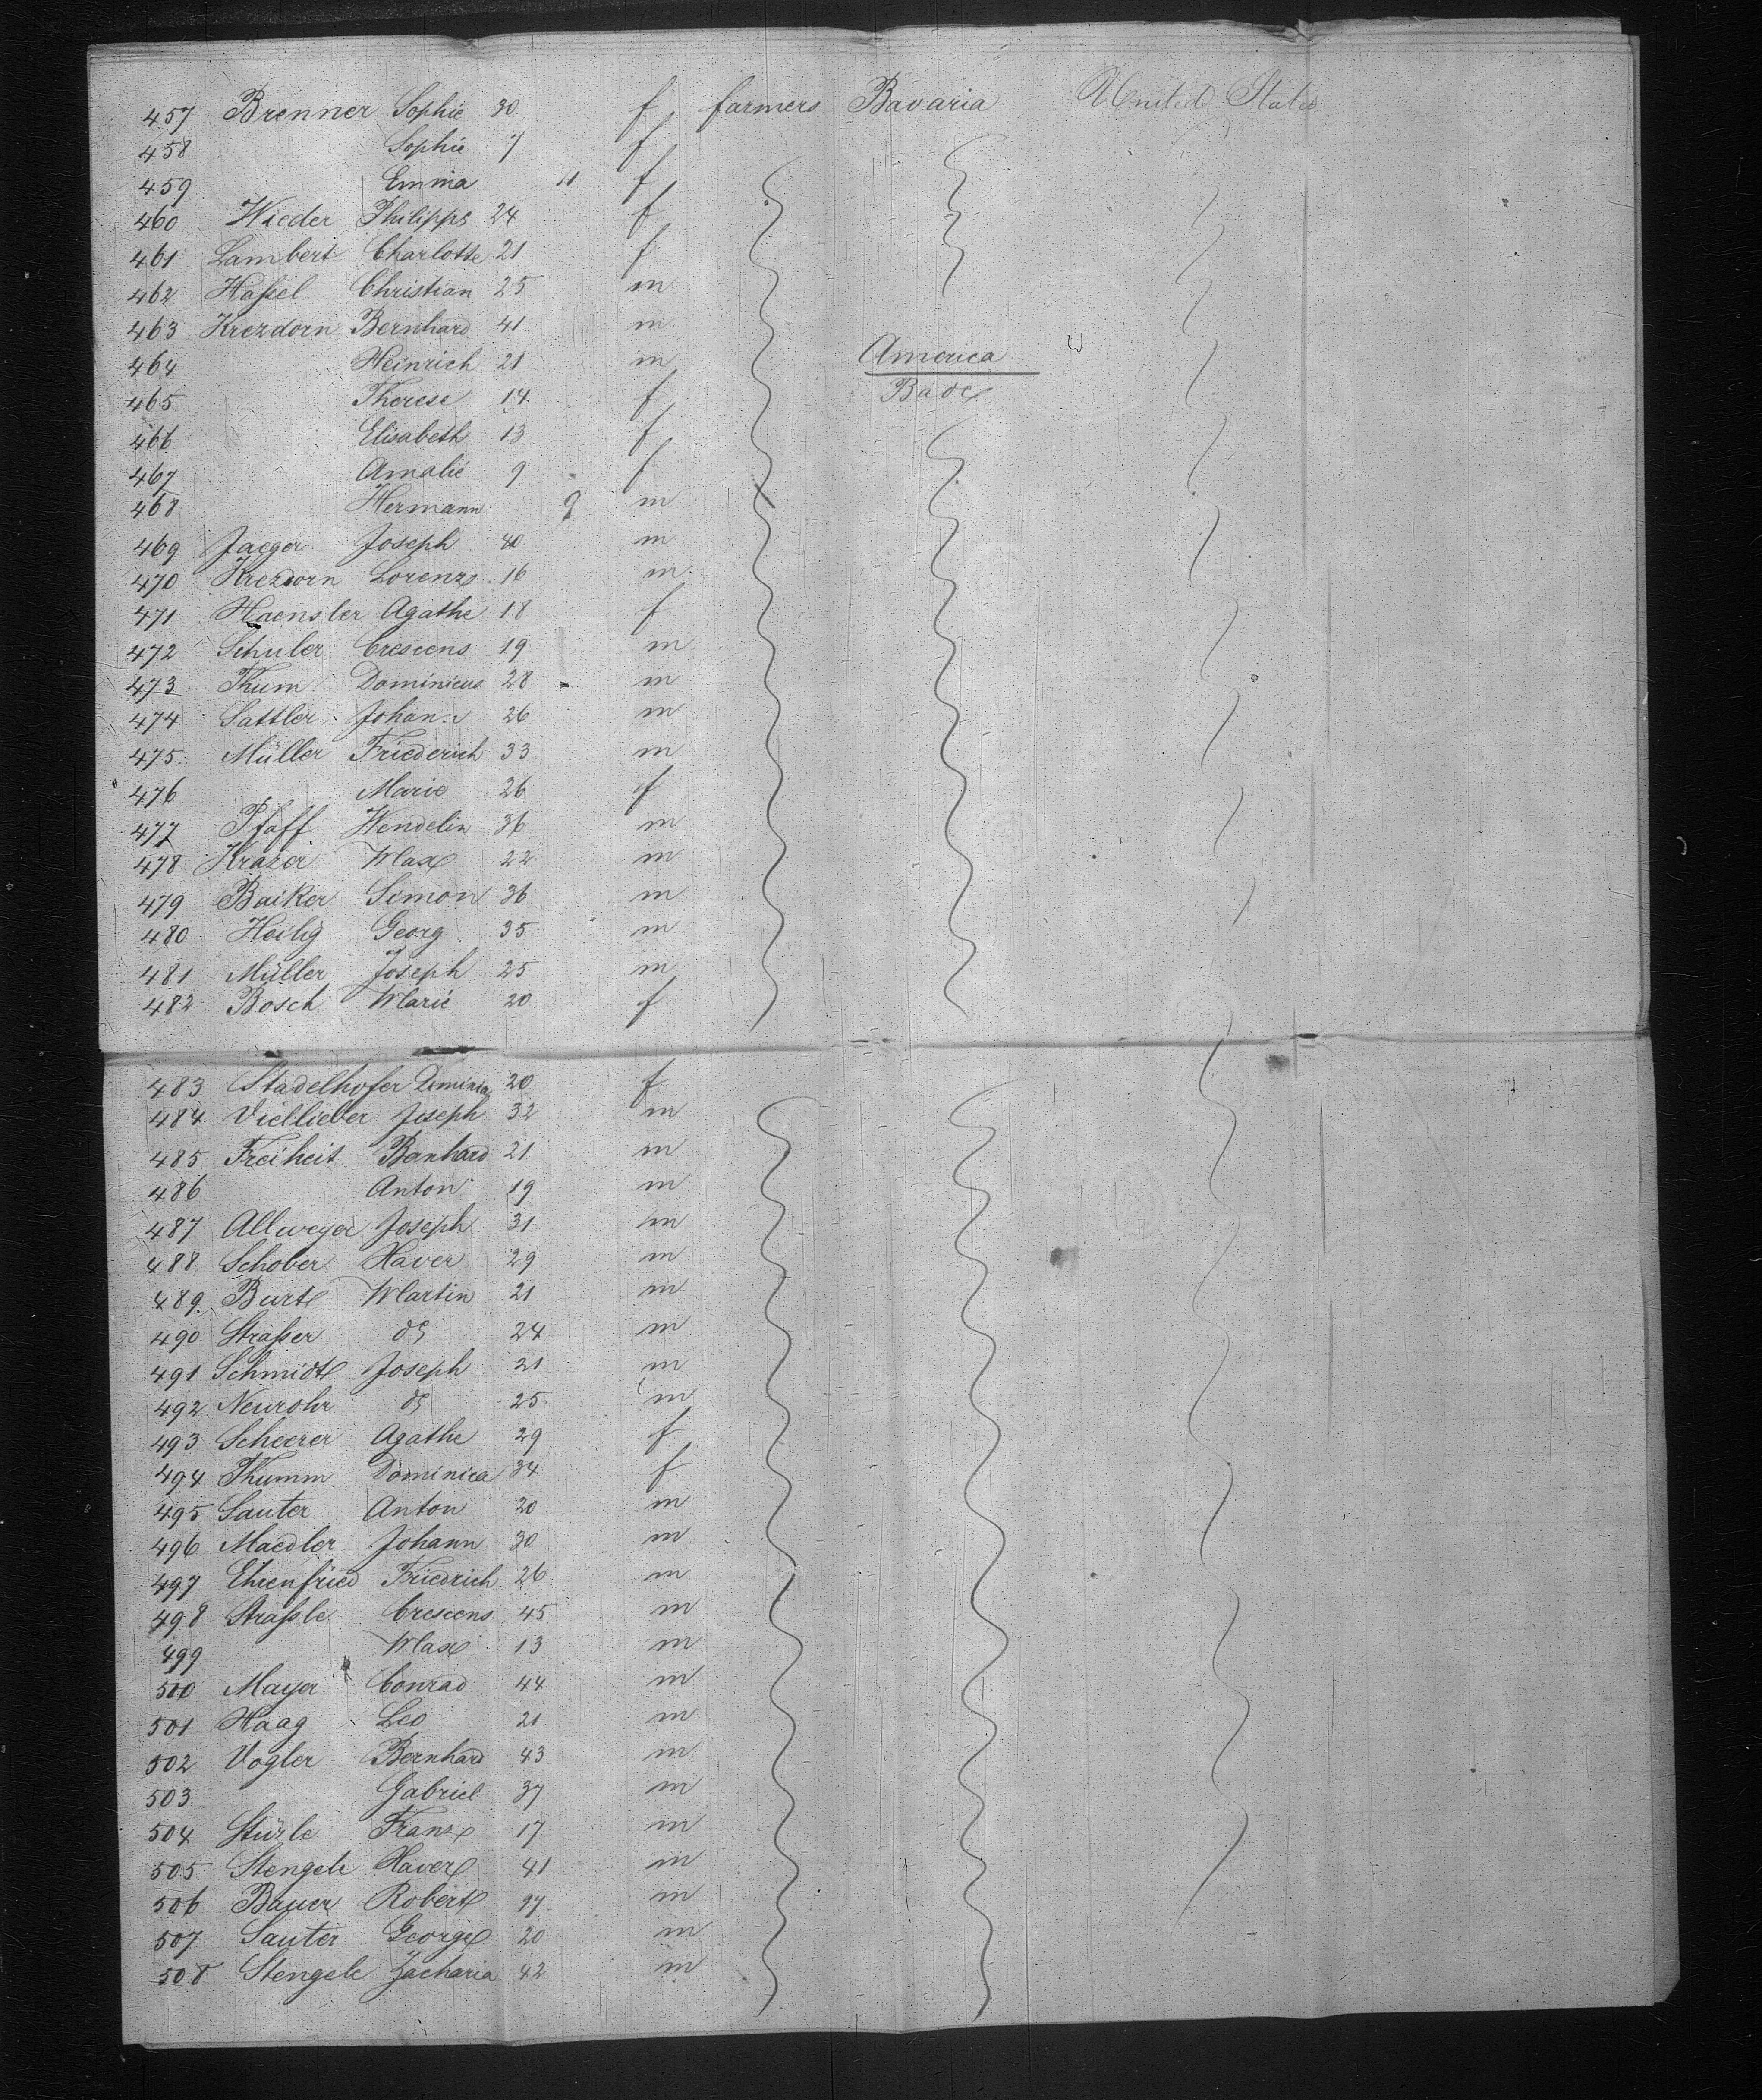 457 Brenner Sophie 30 f farmers Bavaria United States
458 Sophie 7 f
459 Emma 11 f
460 Wieder Philipps 24 f
461 Lambert Charlotte 21 f
462 Haßel Christian 25 m
463 Krezdorn Bernhard 41 m
464 Heinrich 21 m America
465 Therese 14 f Bade
466 Elisabeth 13 f
467 Amalie 9 f
468 Hermann 9 m
469 Jaeger Joseph 40 m
470 Krezdorn Lorenz 16 m
471 Haensler Agathe 18 f
472 Schuler Crescens 19 m
473 Thum Dominicus 28 m
474 Sattler Johann 26 m
475 Müller Friederich 33 m
476 Marie 26 f
477 Pfaff Wendelin 36 m
478 Krazer Max 22 m
479 Baiker Simon 36 m
480 Heilig Georg 35 m
481 Müller Joseph 25 m
482 Bosch Marie 20 f
483 Stadelhofer 20 f
484 Viellieber Joseph 32 m
485 Freiheit Bernhard 21 m
486 Anton 19 m
487 Allweyer Joseph 31 m
488 Schober Xaver 29 m
489 Burt Martin 21 m
490 Straßer do 24 m
491 Schmidt Joseph 21 m
492 Neurohr do 25 m
493 Scheerer Agathe 29 f
494 Thumm Dominica 34 f
495 Sauter Anton 20 m
496 Maedler Johann 30 m
497 Ehrenfried Friedrich 26 m
498 Straßle Crescens 45 m
499 Max 13 m
500 Mayer Conrad 44 m
501 Haag Leo 21 m
502 Vogler Bernhard 43 m
503 Gabriel 37 m
504 Stürle Franz 17 m
505 Stengele Xaver 41 m
506 Bauer Robert 17 m
507 Sauter George 20 m
508 Stengele Zacharia 42 m